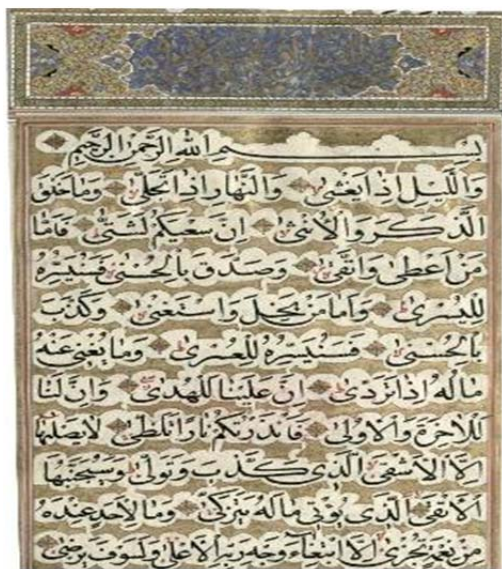 بِسْمِ اللهِ الرَّحْمٰنِ الرَّحِيمِ
وَاللَّيْلِ اِذَا يَغْشٰى وَالنَّهَارِ اِذَا تَجَلّٰى وَمَا خَلَقَ
الذَّكَرَ وَالْاُنْثٰى اِنَّ سَعْيَكُمْ لَشَتّٰى فَاَمَّا
مَنْ اَعْطٰى وَاتَّقٰى وَصَدَّقَ بِالْحُسْنٰى فَسَنُيَسِّرُهُ
لِلْيُسْرٰى وَاَمَّا مَنْ بَخِلَ وَاسْتَغْنٰى وَكَذَّبَ
بِالْحُسْنٰى فَسَنُيَسِّرُهُ لِلْعُسْرٰى وَمَا يُغْنِى عَنْهُ
مَالُهُ اِذَا تَرَدّٰى اِنَّ عَلَيْنَا لَلْهُدٰى وَاِنَّ لَنَا
لَلْاٰخِرَةَ وَالْاُولٰى فَاَنْذَرْتُكُمْ نَارًا تَلَظّٰى لَا يَصْلٰيهَا
اِلَّا الْاَشْقٰى الَّذِى كَذَّبَ وَتَوَلّٰى وَسَيُجَنَّبُهَا
الْاَتْقٰى الَّذِى يُؤْتِى مَالَهُ يَتَزَكّٰى وَمَا لِاَحَدٍ عِنْدَهُ
مِنْ نِعْمَةٍ تُجْزٰى اِلَّا ابْتِغَاءَ وَجْهِ رَبِّهِ الْاَعْلٰى وَلَسَوْفَ يَرْضٰى